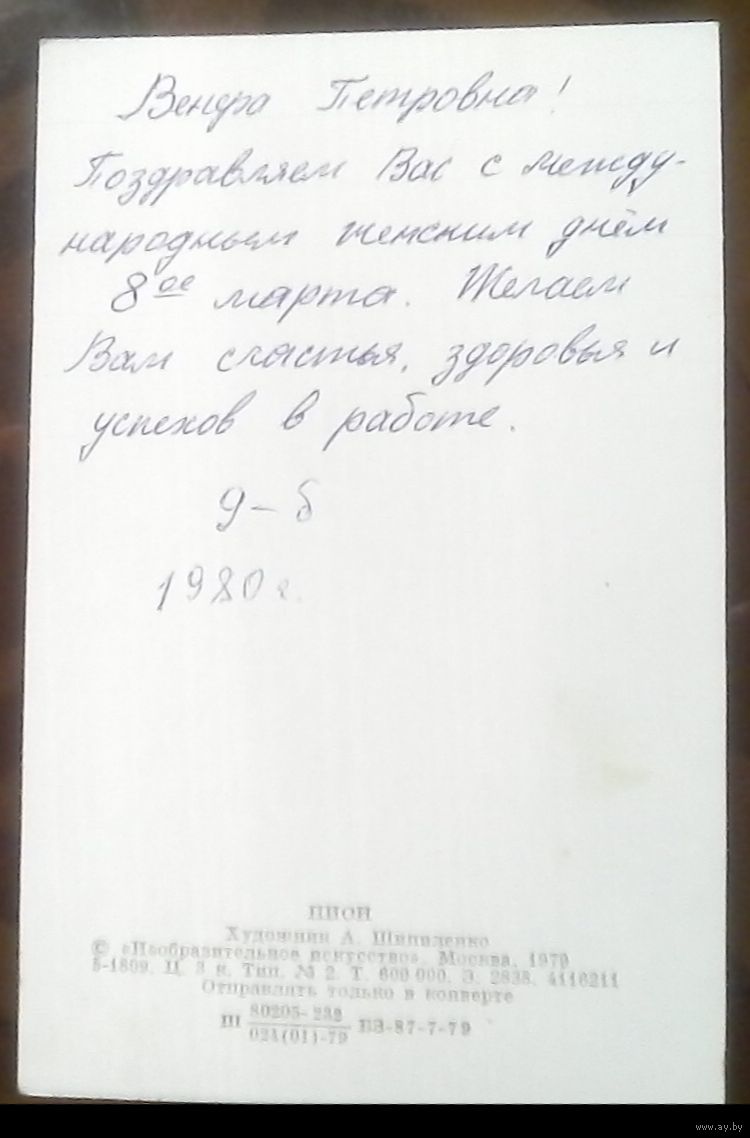 Венра Петровна!
Поздравляем Вас с между-
народным женским днём
8ое марта. Желаем
Вам счастья, здоровья и
успехов в работе.
9-б
1980 г.
ПИОН
Художник А. Шипиленко
© «Изобразительное искусство». Москва. 1979
5-1809. Ц. 3 к. Тип. № 2. Т. 600 000. З. 2838. 4116211
Отправлять только в конверте
Ш 80205-232 ВЗ-87-7-79
024(01)-79
www.ay.by